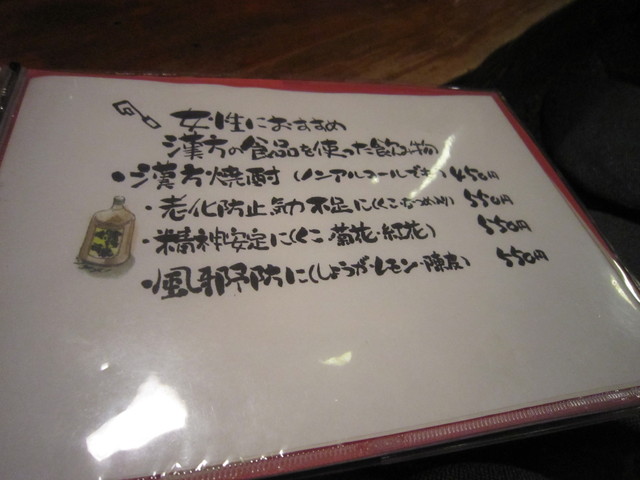 女性におすすめ
漢方の食品を使った飲み物
・漢方焼酎(ノンアルコールでも可) 450円
・老化防止気力不足に(くこ・なつめ入り) 550円
・精神安定に(くこ・菊花・紅花) 550円
・風邪予防に(しょうが・レモン・陳皮) 550円